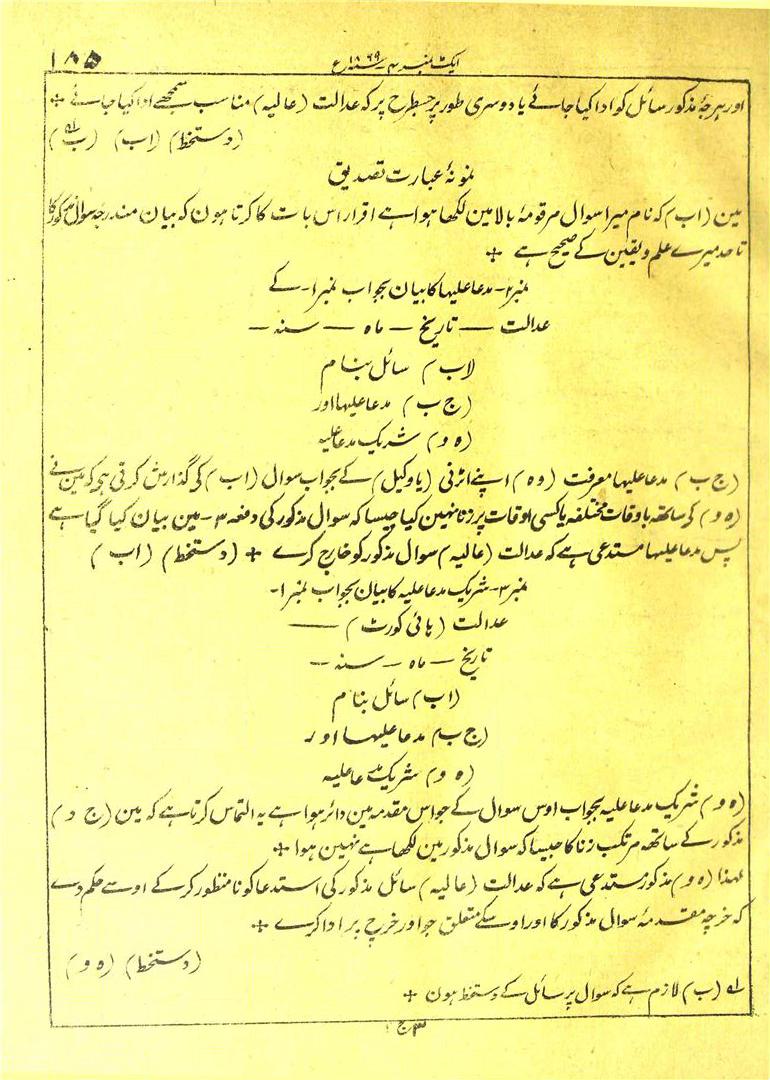 ایکٹ نمبر ۴ ۱۸۶۹ سنہ ع
۱۸۵
اور ہرجۂ مذکور سائل کو ادا کیا جائے یا دوسری طور پر جسطرح پر کہ عدالت (عالیہ) مناسب سمجھے ادا کیا جائے +
(دستخط) (اب) (ب)
نمونۂ عبارت تصدیق
مین (اب) کہ نام میرا سوال مرقومۂ بالا مین لکھا ہوا ہے اقرار اس بات کا کرتا ہون کہ بیان مندرجہ سوال مذکور کا
تا حد میرے علم و یقین کے صحیح ہے +
نمبر ۲- مدعا علیہا کا بیان بجواب نمبر ۱- کے
عدالت — تاریخ — ماہ — سنہ —
(اب) سائل بنام
(ج ب) مدعا علیہا اور
(ہ و) شریک مدعا علیہ
(ج ب) مدعا علیہا معرفت (و ہ) اپنے اٹرنی (یا وکیل) کے بجواب سوال (اب) کی گذارش کرتی ہی کہ مین نے
(ہ و) کے ساتھ باوقات مختلفہ یا کسی اوقات پر زنا نہین کیا جیسا کہ سوال مذکور کی دفعہ ۳- مین بیان کیا گیا ہے
پس مدعا علیہا مستدعی ہے کہ عدالت (عالیہ) سوال مذکور کو خارج کرے + (دستخط) (اب)
نمبر ۳- شریک مدعا علیہ کا بیان بجواب نمبر ۱-
عدالت (ہائی کورٹ) —
تاریخ — ماہ — سنہ —
(اب) سائل بنام
(ج ب) مدعا علیہا اور
(ہ و) شریک مدعا علیہ
(ہ و) شریک مدعا علیہ بجواب اوس سوال کے جو اس مقدمہ مین دائر ہوا ہے یہ التماس کرتا ہے کہ مین (ج د)
مذکور کے ساتھ مرتکب زنا کا جیسا کہ سوال مذکور مین لکھا ہے نہین ہوا +
لہذا (ہ و) مذکور مستدعی ہے کہ عدالت (عالیہ) سائل مذکور کی استدعا کو نامنظور کرکے اوسے حکم دے
کہ خرچہ مقدمہ سوال مذکور کا اور اوسکے متعلق جو اور خرچ ہو ادا کرے +
(دستخط) (ہ و)
(ب) لازم ہے کہ سوال پر سائل کے دستخط ہون +